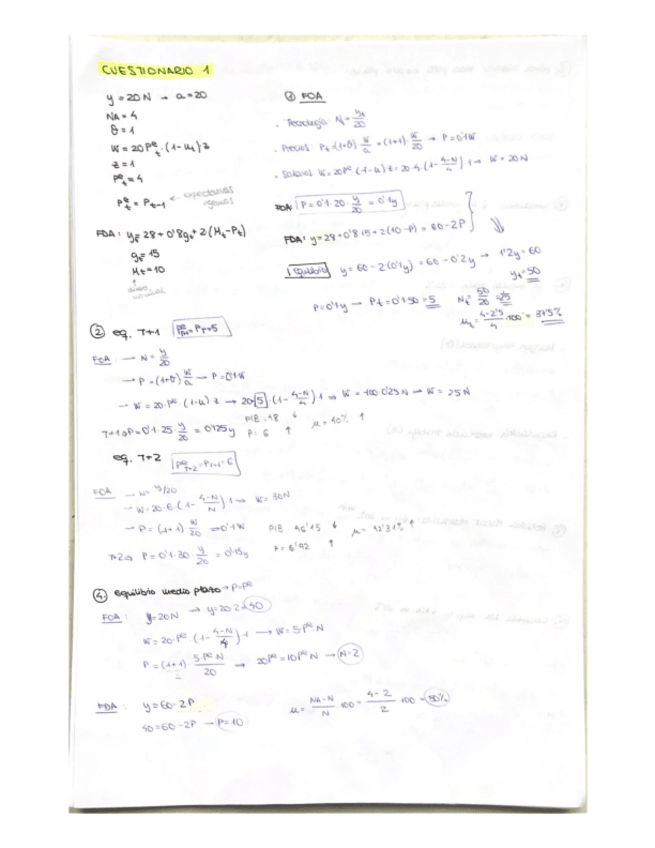 CUESTIONARIO 1
y = 20N → a = 20
NA = 4
θ = 1
W = 20 P^e_t · (1 - u_t) · z
z = 1
P^e_t = 4
P^e_t = P_{t-1} ← expectativas
FDA: y_t = 28 + 0'8 g_t + 2 · (M_t - P_t)
g_t = 15
M_t = 10
① FOA
· Tecnología: N_t = y_t/20
· Precios: P_t = (1+θ) · W/a = (1+1) · W/20 → P = 0'1W
· Salarios: W = 20P^e (1-u_t) z = 20·4·(1 - (4-N)/4) 1 → W = 20N
FOA: P = 0'1 · 20 · y/20 = 0'1y
FDA: y = 28 + 0'8·15 + 2(10 - P) = 60 - 2P
Equilibrio y = 60 - 2(0'1y) = 60 - 0'2y → 1'2y = 60
y_t = 50
P = 0'1y → P_t = 0'1·50 = 5 N_t = 50/20 = 2'5
u_t = (4-2'5)/4 · 100 = 37'5%
② eq. T+1 P^e_{t+1} = P_t = 5
FOA → N = y/20
→ P = (1+θ) W/a → P = 0'1W
→ W = 20·P^e (1-u) z → 20·5·(1 - (4-N)/4) 1 ⇒ W = 100·0'25N → W = 25N
T+1 ⇒ P = 0'1·25 · y/20 = 0'125y PIB: 48 ↓ u = 40% ↑
P: 6 ↑
eq. T+2 P^e_{t+2} = P_{t+1} = 6
FOA → N = y/20
→ W = 20·6·(1 - (4-N)/N) 1 → W = 30N
→ P = (1+1) W/20 ⇒ 0'1W PIB: 46'15 ↓ u = 42'31% ↑
T+2 ⇒ P = 0'1·30 · y/20 = 0'15y P = 6'92 ↑
④ equilibrio medio plazo → P = P^e
FOA: y = 20N → y = 20·2 = 40
W = 20·P^e (1 - (4-N)/4) · 1 → W = 5·P^e·N
P = (1+1) 5·P^e N/20 → 20P^e = 10P^e N → N = 2
FDA: y = 60 - 2P
40 = 60 - 2P → P = 10
u = (NA-N)/N · 100 = (4-2)/2 · 100 = 50%